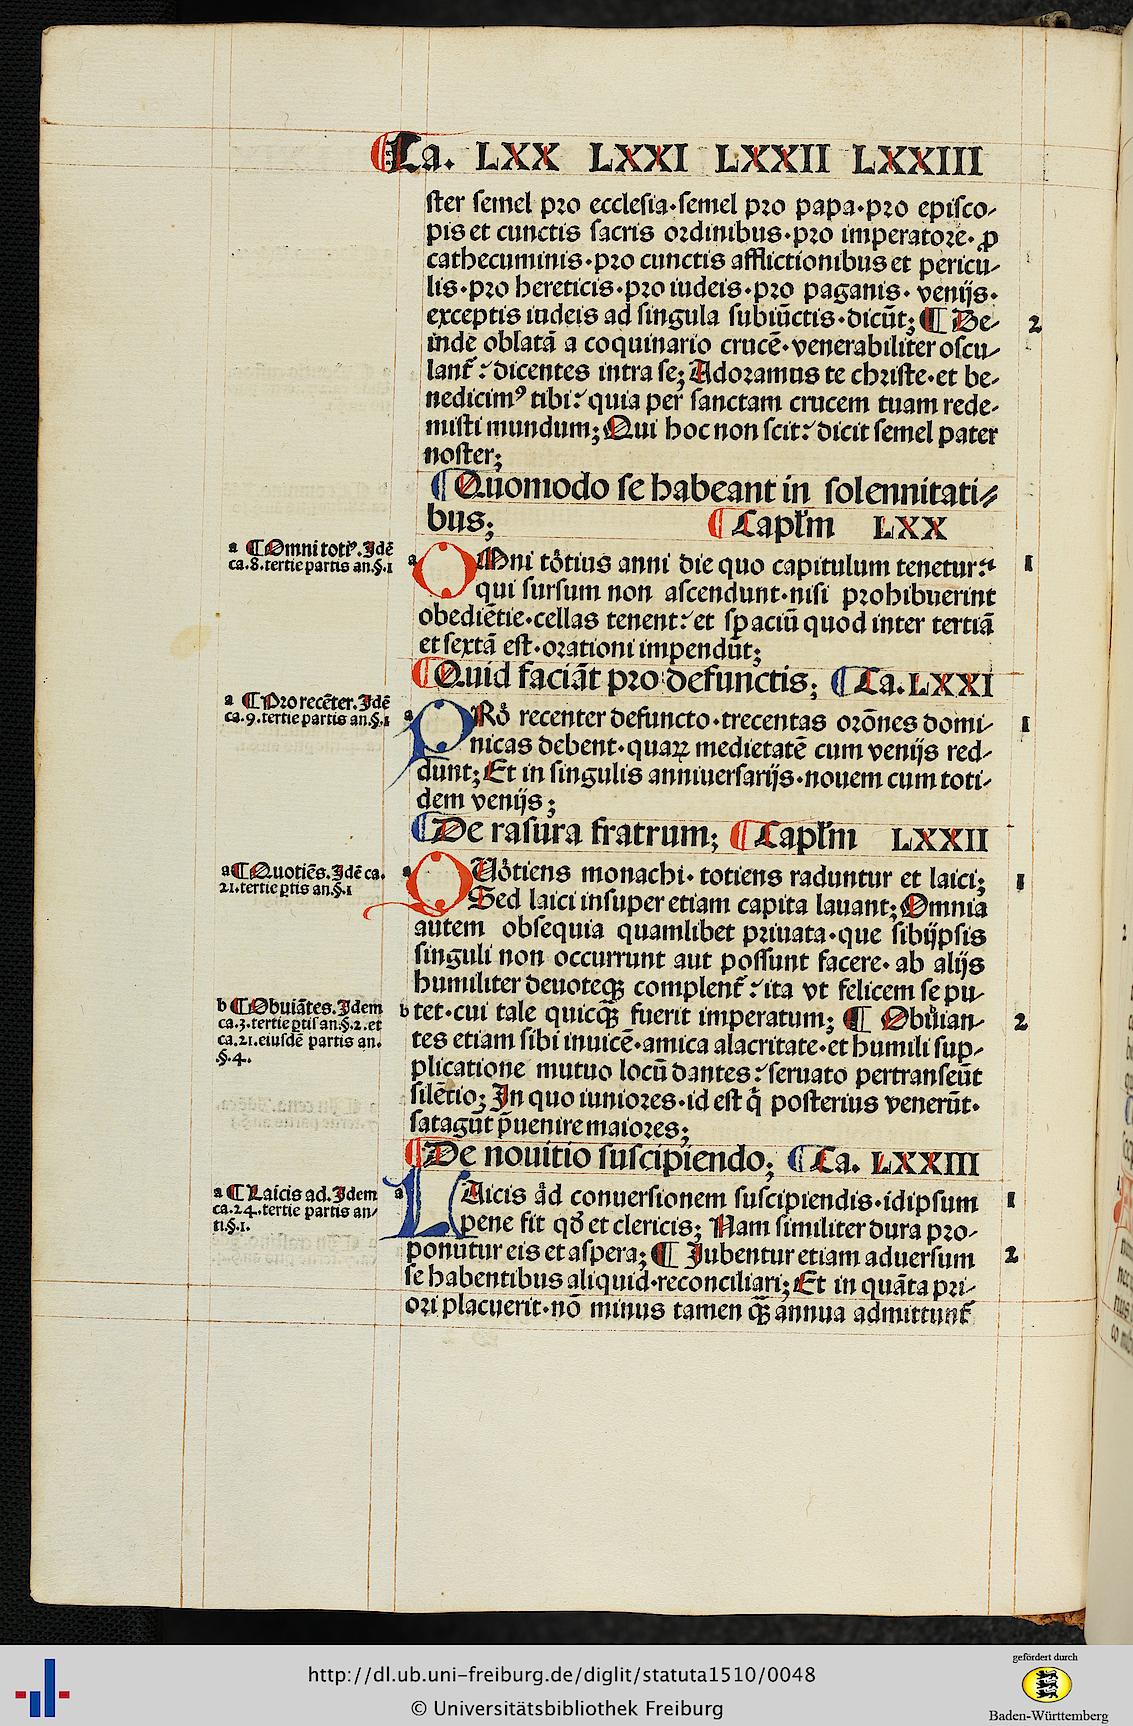 Ca. LXX LXXI LXXII LXXIII
ster semel pro ecclesia·semel pro papa·pro episco-
pis et cunctis sacris ordinibus·pro imperatore·ꝓ
cathecuminis·pro cunctis afflictionibus et pericu-
lis·pro hereticis·pro iudeis·pro paganis·venijs·
exceptis iudeis ad singula subiūctis·dicūt; ¶ De- 2
inde oblatā a coquinario crucē·venerabiliter oscu-
lant᷑: dicentes intra se; Adoramus te christe·et be-
nedicimꝰ tibi: quia per sanctam crucem tuam rede-
misti mundum; Qui hoc non scit: dicit semel pater
noster;
¶ Quomodo se habeant in solennitati-
bus; ¶ Capłm LXX
a ¶ Omni totiꝰ. Idē
ca.8. tertie partis an.§.1
a OMni totius anni die quo capitulum tenetur: 1
qui sursum non ascendunt·nisi prohibuerint
obediētie·cellas tenent: et spaciū quod inter tertiā
et sextā est·orationi impendūt;
¶ Quid faciāt pro defunctis; ¶ Ca. LXXI
a ¶ Pro recēter. Idē
ca.9. tertie partis an.§.1
a PRo recenter defuncto·trecentas orōnes domi- 1
nicas debent·quaꝝ medietatē cum venijs red-
dunt; Et in singulis anniuersarijs·nouem cum toti-
dem venijs;
¶ De rasura fratrum; ¶ Capłm LXXII
a ¶ Quotiēs. Idē ca.
21. tertie ꝑtis an.§.1
a QUotiens monachi·totiens raduntur et laici; 1
Sed laici insuper etiam capita lauant; Omnia
autem obsequia quamlibet priuata·que sibijpsis
singuli non occurrunt aut possunt facere·ab alijs
humiliter deuoteqꝫ complent᷑: ita vt felicem se pu-
b ¶ Obuiātes. Idem
ca.3. tertie ꝑtis an.§.2. et
ca.21. eiusdē partis an.
§.4.
b tet·cui tale quicqꝫ fuerit imperatum; ¶ Obuian- 2
tes etiam sibi inuicē·amica alacritate·et humili sup-
plicatione mutuo locū dantes: seruato pertranseūt
silētio; In quo iuniores·id est q̄ posterius venerūt·
satagūt p̄uenire maiores;
¶ De nouitio suscipiendo; ¶ Ca. LXXIII
a ¶ Laicis ad. Idem
ca.24. tertie partis an-
ti.§.1.
a LAicis ad conuersionem suscipiendis·idipsum 1
pene fit qđ et clericis; Nam similiter dura pro-
ponūtur eis et aspera; ¶ Jubentur etiam aduersum 2
se habentibus aliquid·reconciliari; Et in quāta pri-
ori placuerit·nō minus tamen qꝫ annua admittunt᷑
http://dl.ub.uni-freiburg.de/diglit/statuta1510/0048
© Universitätsbibliothek Freiburg
gefördert durch
Baden-Württemberg